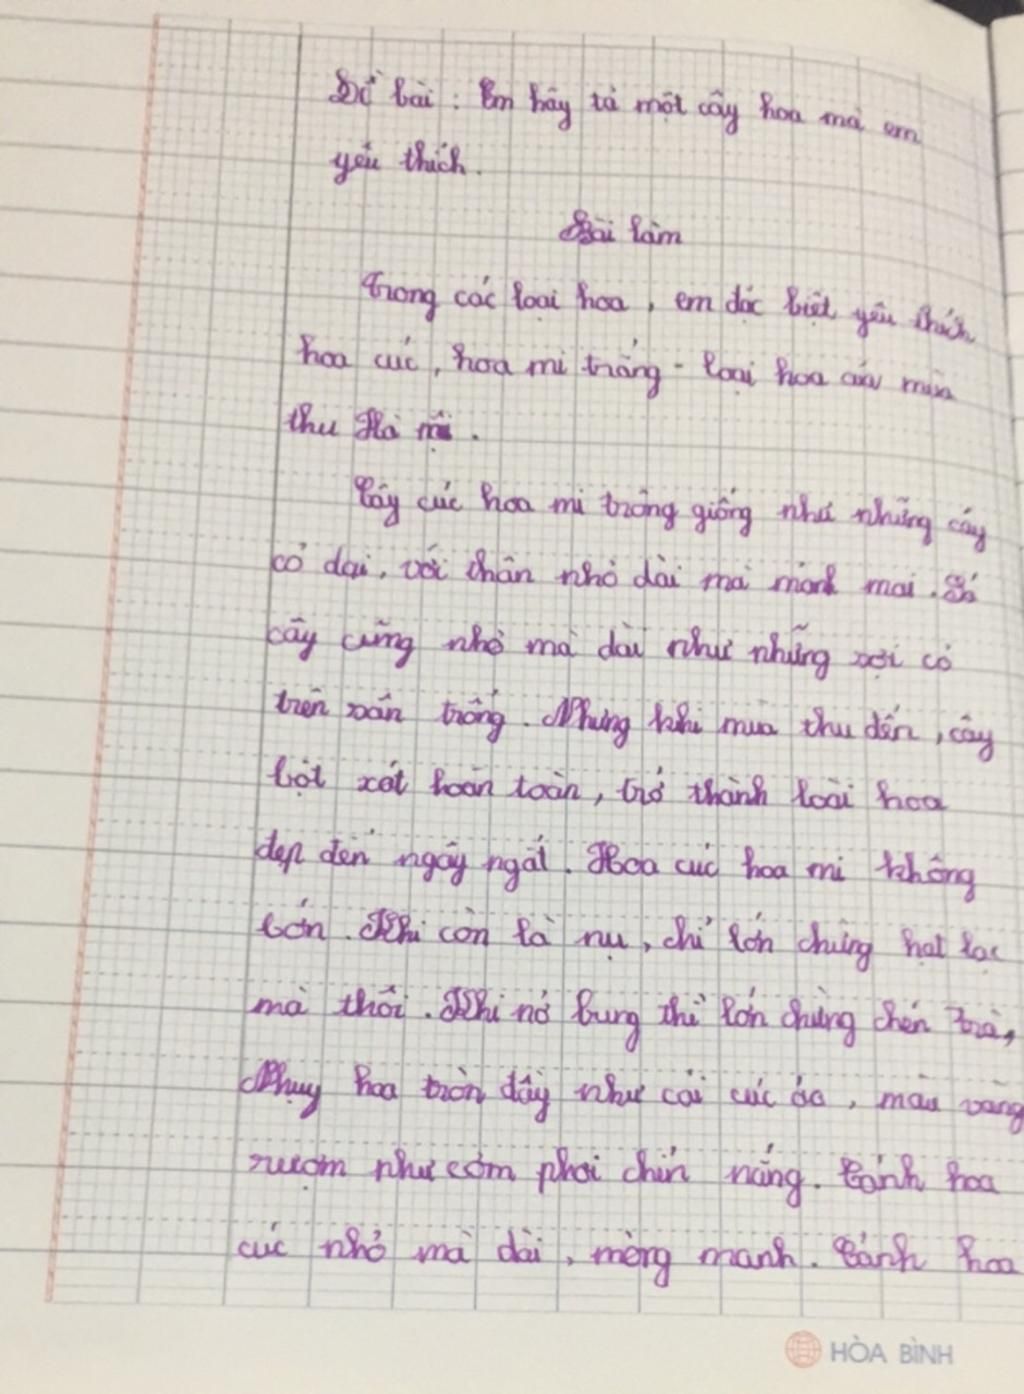 Đề bài : Em hãy tả một cây hoa mà em
yêu thích.
Bài làm
Trong các loại hoa, em đặc biệt yêu thích
hoa cúc, hoa mi trắng - loại hoa của mùa
thu Hà nội.
Cây cúc hoa mi trông giống như những cây
cỏ dại, với thân nhỏ dài mà mảnh mai. Lá
cây cũng nhỏ mà dài như những sợi cỏ
trên sân trống. Nhưng khi mùa thu đến, cây
lột xát hoàn toàn, trở thành loài hoa
đẹp đến ngây ngất. Hoa cúc hoa mi không
lớn. Khi còn là nụ, chỉ lớn chừng hạt lạc
mà thôi. Khi nở bung thì lớn chừng chén trà,
Nhụy hoa tròn đầy như cái cúc áo, màu vàng
rượm như cơm phơi chín nắng. Cánh hoa
cúc nhỏ mà dài, mỏng manh. Cánh hoa
HÒA BÌNH